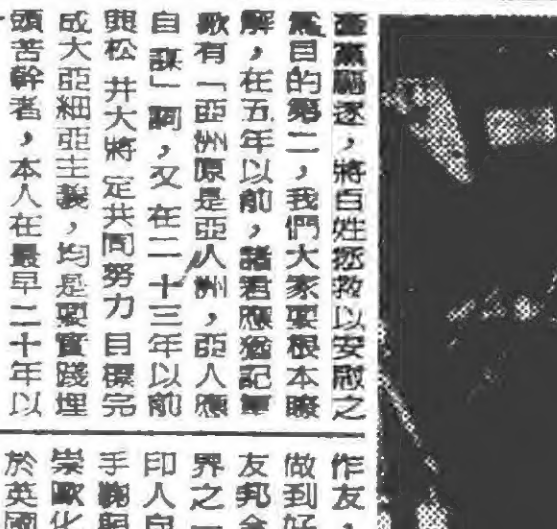 產黨驅逐，將百姓拯救以安慰之
爲目的第二，我們大家要根本瞭
解，在五年以前，諸君應猶記軍
歌有「亞洲原是亞人洲，亞人應
自謀」詞，又在二十三年以前
與松井大將定共同努力目標完
成大亞細亞主義，均是要實踐埋
頭苦幹者，本人在最早二十年以
作友，
做到好
友邦合
界之一
印人自
手
崇歐化
於英國